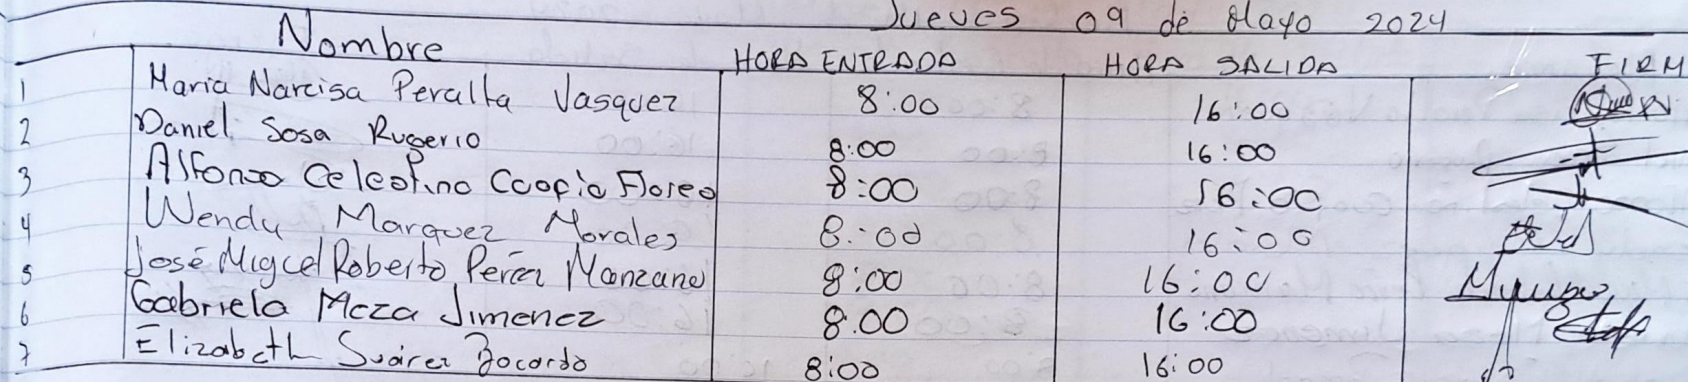 Jueves 09 de Mayo 2024
Nombre HORA ENTRADA HORA SALIDA FIRM
1 Maria Narcisa Peralta Vasquez 8:00 16:00
2 Daniel Sosa Rugerio 8:00 16:00
3 Alfonso Celestino Coapio Flores 8:00 16:00
4 Wendy Marquez Morales 8:00 16:00
5 José Miguel Roberto Perez Manzano 8:00 16:00
6 Gabriela Meza Jimenez 8:00 16:00
7 Elizabeth Suárez Bocardo 8:00 16:00